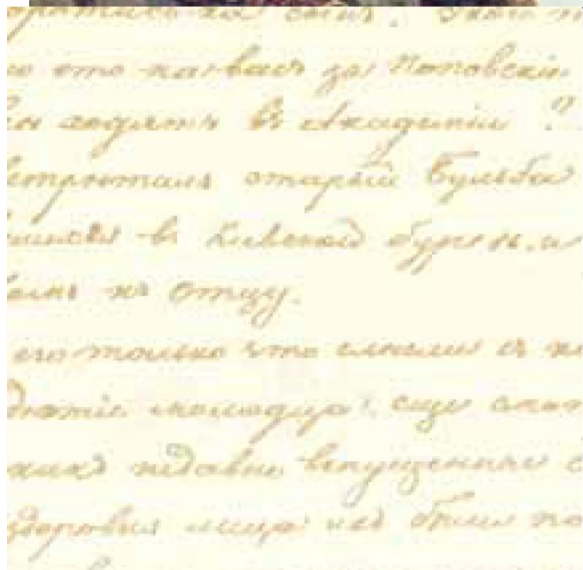 сынъ!
это на васъ за Поповскіи
ходятъ въ Академіи ?
встрѣтилъ старый Бульба
въ Киевской бурсѣ, и
къ отцу.
его только что слѣзли съ к
молодца, еще смот
какъ недавно выпущенные с
здоровыя лица ихъ были по